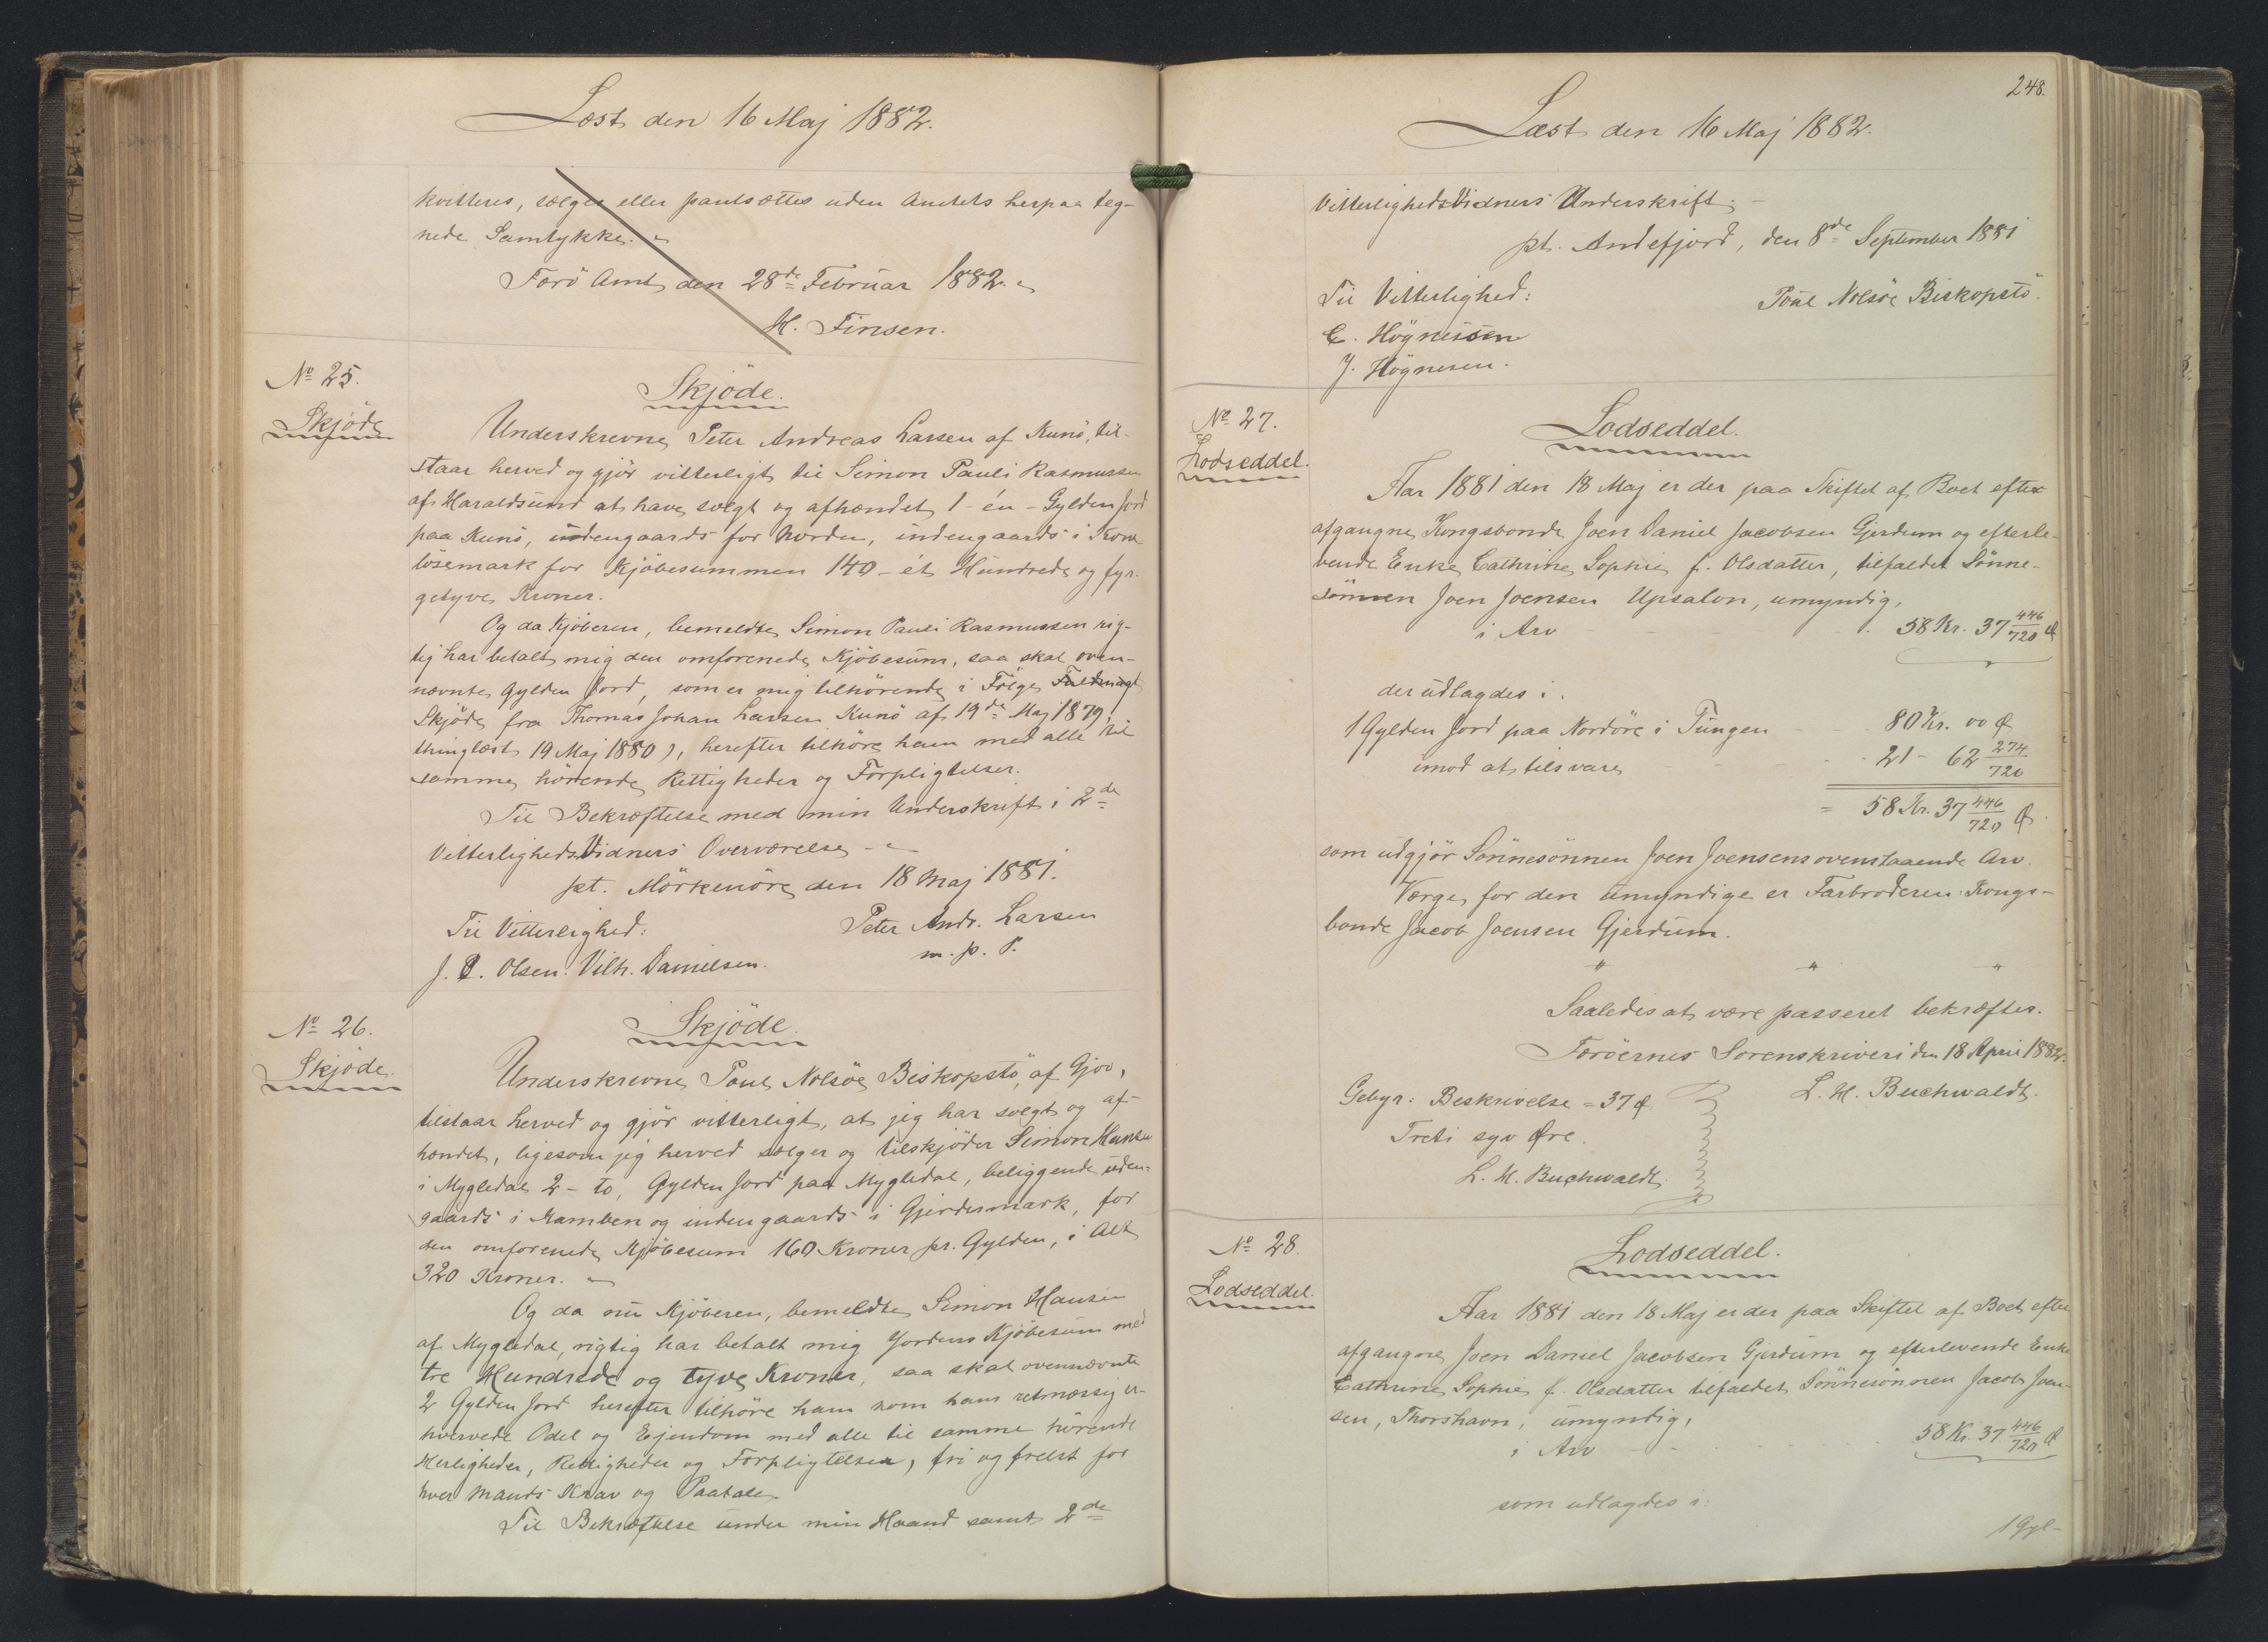 Læst den 16 Maj 1882.
kvitteres, sælges eller pantsættes uden Amtets herpaa teg-
nede Samtykke.
Færö Amt den 28de Februar 1882.
H. Finsen.
No 25.
Skjöde
Skjöde.
Underskrevne Peter Andreas Larsen af Kunö, til-
staar herved og gjör vitterligt til Simon Pauli Rasmussen
af Haraldsund at have solgt og afhændet 1 - én - Gylden Jord
paa Kunö, udengaards for Norden, indengaards i
lösemark for Kjöbesummen 140 - ét Hundrede og fyr-
getyve Kroner.
Og da Kjöberen, bemeldte Simon Pauli Rasmussen rig-
tig har betalt mig den omforenede Kjöbesum, saa skal oven-
nævnte Gylden Jord, som er mig tilhörende i Fölge
Skjöde fra Thomas Johan Larsen Kunö af 19de Maj 1879,
thinglæst 19 Maj 1880), herefter tilhöre ham med alle til
samme hörende Rettigheder og Forpligtelser.
Til Bekræftelse med min Underskrift i 2de
Vitterlighedsvidners Overværelse
pt. Mörkenöre den 18 Maj 1881.
Til Vitterlighed: Peter Andr. Larsen
J. P. Olsen. Vilh. Danielsen. m. p. P.
No 26.
Skjöde.
Skjöde.
Underskrevne Poul Nolsöe Biskopstö, af Gjov,
tilstaar herved og gjör vitterligt, at jeg har solgt og af-
hændet, ligesom jeg herved sælger og tilskjöder Simon Hansen
i Mygledal 2 - to, Gylden Jord paa Mygledal, beliggende uden-
gaards i Kamben og indengaards i Gjerdesmark, for
den omforenede Kjöbesum 160 Kroner pr. Gylden, i Alt
320 Kroner.
Og da nu Kjöberen, bemeldte Simon Hansen
af Mygledal, rigtig har betalt mig Jordens Kjöbesum med
tre Hundrede og tyve Kroner, saa skal ovennævnte
2 Gylden Jord herefter tilhöre ham som hans retmæssig er-
hvervede Odel og Ejendom med alle til samme hörende
Herligheder, Rettigheder og Forpligtelser, fri og frelst for
hver Mands Krav og Paatale.
Til Bekræftelse under min Haand samt 2de
248.
Læst den 16 Maj 1882.
Vitterlighedsvidners Underskrift.
pt. Andefjord, den 8de September 1881
Til Vitterlighed: Poul Nolsöe Biskopstö.
C. Högnissen
J. Högnesen.
No 27.
Lodseddel.
Lodseddel.
Aar 1881 den 18 Maj er der paa Skiftet af Boet efter
afgangne Kongsbonde Joen Daniel Jacobsen Gjerdum og efterle-
vende Enke Cathrine Sophie f. Olsdatter, tilfaldet Sönne-
sönnen Joen Joensen Upsalon, umyndig,
i Arv 58 Kr. 37 446/720 Ø
der udlagdes i:
1 Gylden Jord paa Nordöre i Tungen 80 Kr. 00 Ø
imod at tilsvare 21 - 62 274/720
= 58 Kr. 37 446/720 Ø.
som udgjör Sönnesönnen Joen Joensens ovenstaaende Arv.
Værge for den umyndige er Farbroderen: Kongs-
bonde Jacob Joensen Gjerdum.
" " "
Saaledes at være passeret bekræftes.
Færöernes Sorenskriveri den 18 April 1882.
L. H. Buchwaldt.
Gebyr: Beskrivelse = 37 Ø
Treti syv Øre.
L. H. Buchwaldt.
No 28.
Lodseddel.
Lodseddel.
Aar 1881 den 18 Maj er der paa Skiftet af Boet efter
afgangne Joen Daniel Jacobsen Gjerdum og efterlevende Enke
Cathrine Sophie f. Olsdatter tilfaldet Sönnesönnen Jacob Joen-
sen, Thorshavn, umyndig,
i Arv 58 Kr. 37 446/720 Ø
som udlagdes i:
1 Gyl-